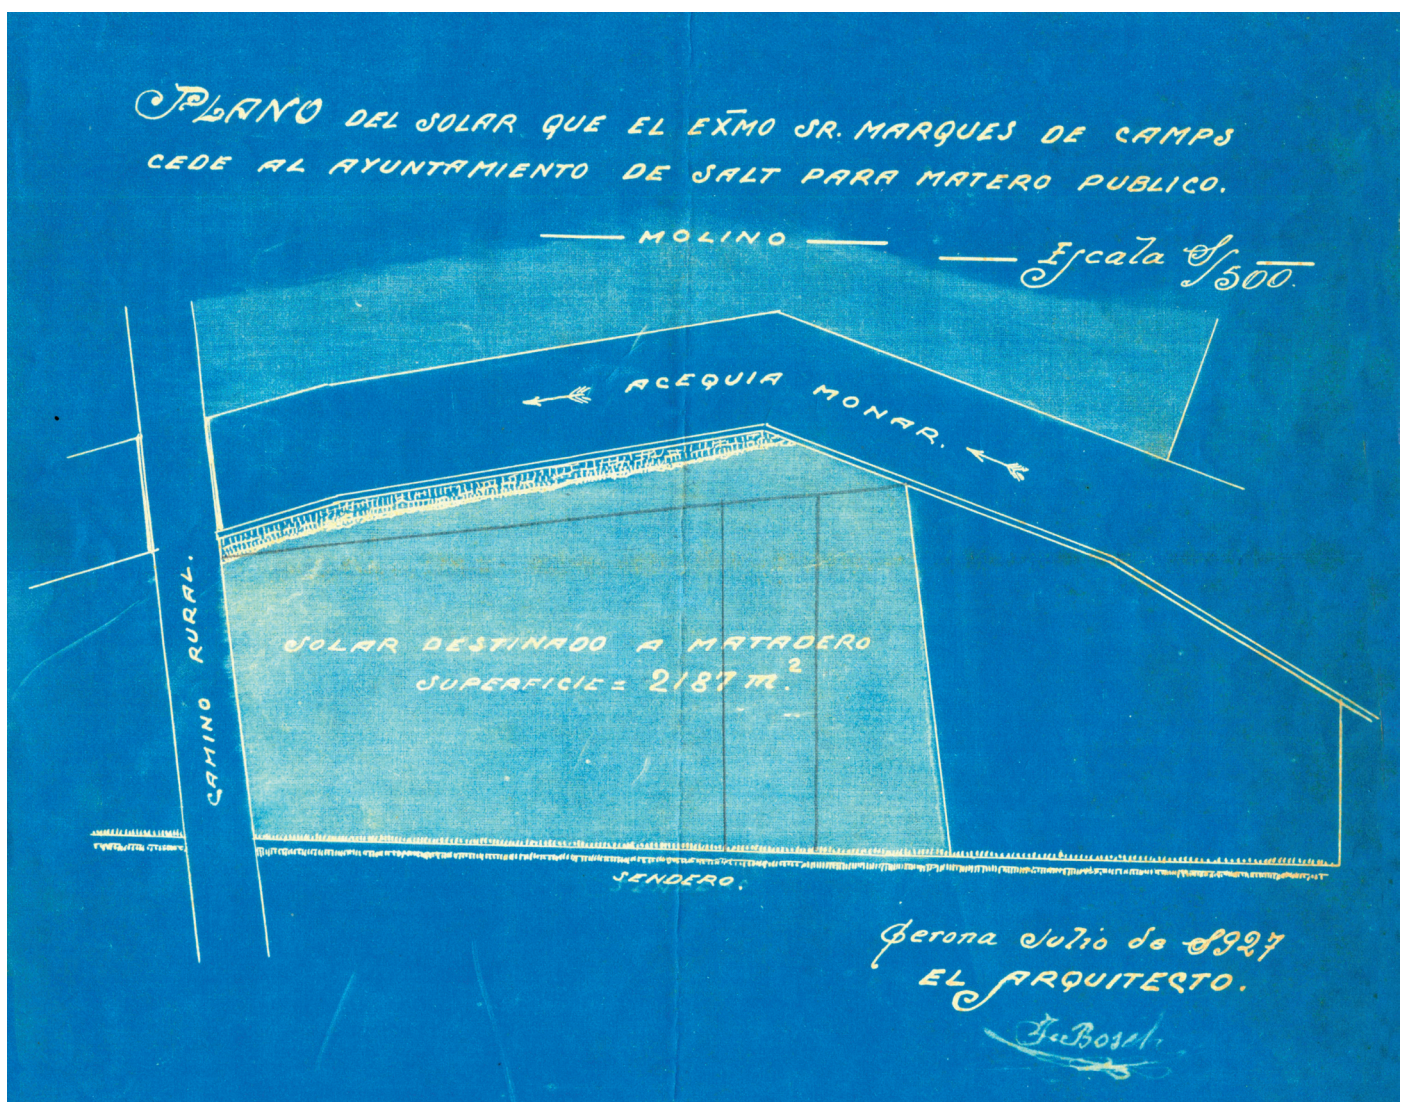 PLANO DEL SOLAR QUE EL EXMO SR. MARQUES DE CAMPS
CEDE AL AYUNTAMIENTO DE SALT PARA MATERO PUBLICO.
MOLINO
Escala 1/500.
ACEQUIA MONAR.
CAMINO RURAL.
SOLAR DESTINADO A MATADERO
SUPERFICIE = 2187 m.²
SENDERO.
Gerona Julio de 1927
EL ARQUITECTO.